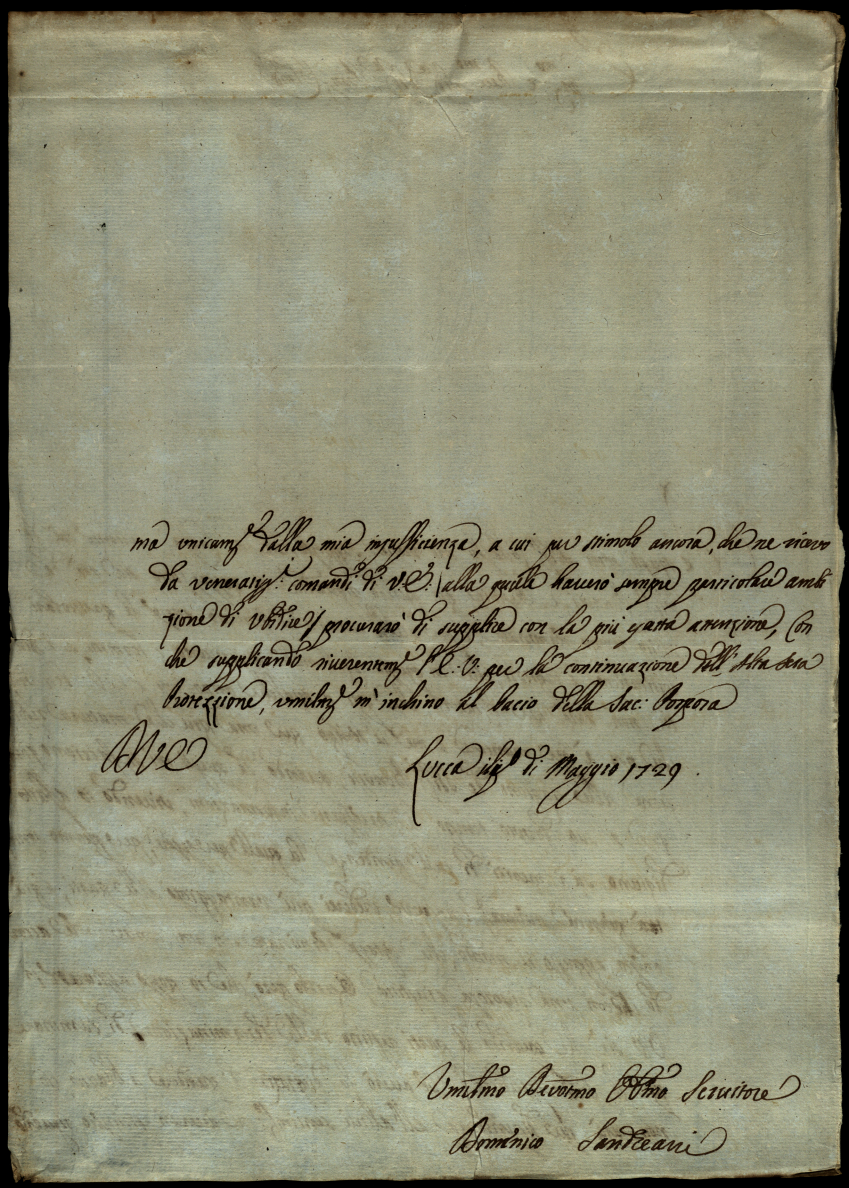 ma unicam.e dalla mia insufficienza, a cui per stimolo ancora, che ne ricevo
da veneratiss.i comandi di V.E. (alla quale haverò sempre particolare ambi
zione di ubidire) procurarò di supplire con la più esatta attenzione, Con
che supplicando riverentem.e l'E.V. per la continuazione dell'Alta sua
Protezzione, umilm.e m'inchino al bacio della Sac: Porpora
Lucca di Maggio 1729.
Umilmo Devotmo Obbmo Servitore
Domenico